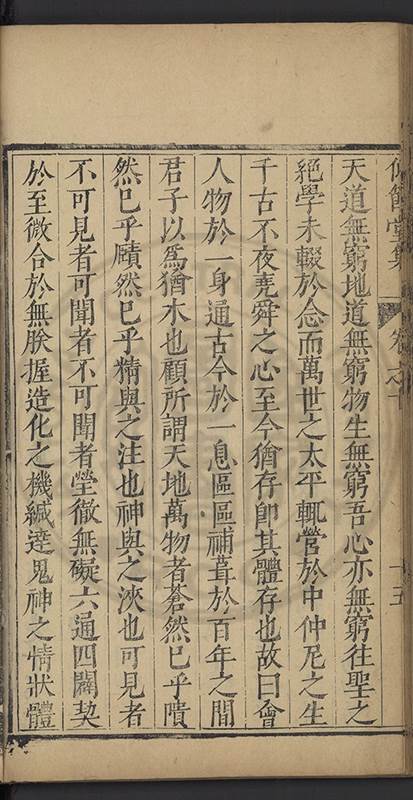 天道無窮地道無窮物生無窮吾心亦無窮往聖之
絕學未輟於念而萬世之太平輒營於中仲尼之生
千古不夜堯舜之心至今猶存卽其體存也故曰會
人物於一身通古今於一息區區補葺於百年之間
君子以爲猶木也顧所謂天地萬物者蒼然巳乎嘳
然巳乎賾然巳乎精與之注也神與之浹也可見者
不可見者可聞者不可聞者瑩徹無礙六通四闢契
於至微合於無朕握造化之機緘達鬼神之情狀體